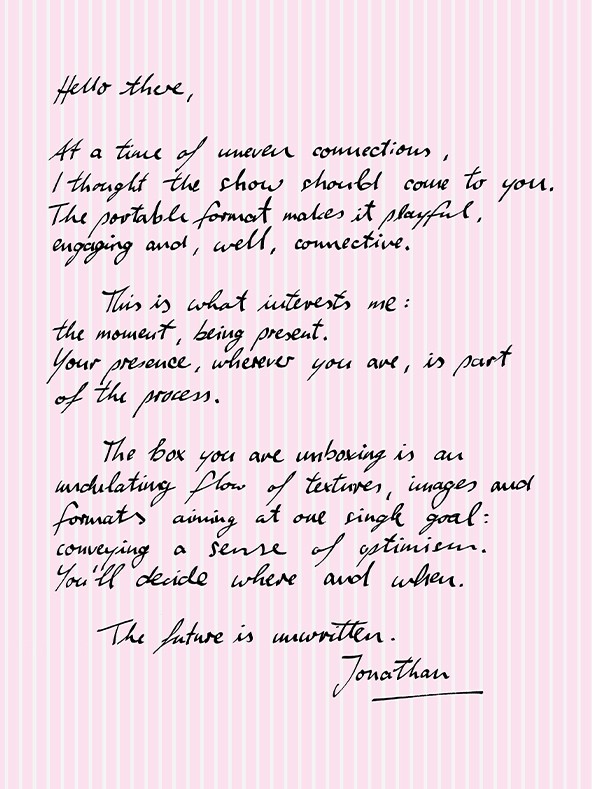 Hello there,
At a time of uneven connections,
I thought the show should come to you.
The portable format makes it playful,
engaging and, well, connective.
This is what interests me:
the moment, being present.
Your presence, wherever you are, is part
of the process.
The box you are unboxing is an
undulating flow of textures, images and
formats aiming at one single goal:
conveying a sense of optimism.
You'll decide where and when.
The future is unwritten.
Jonathan